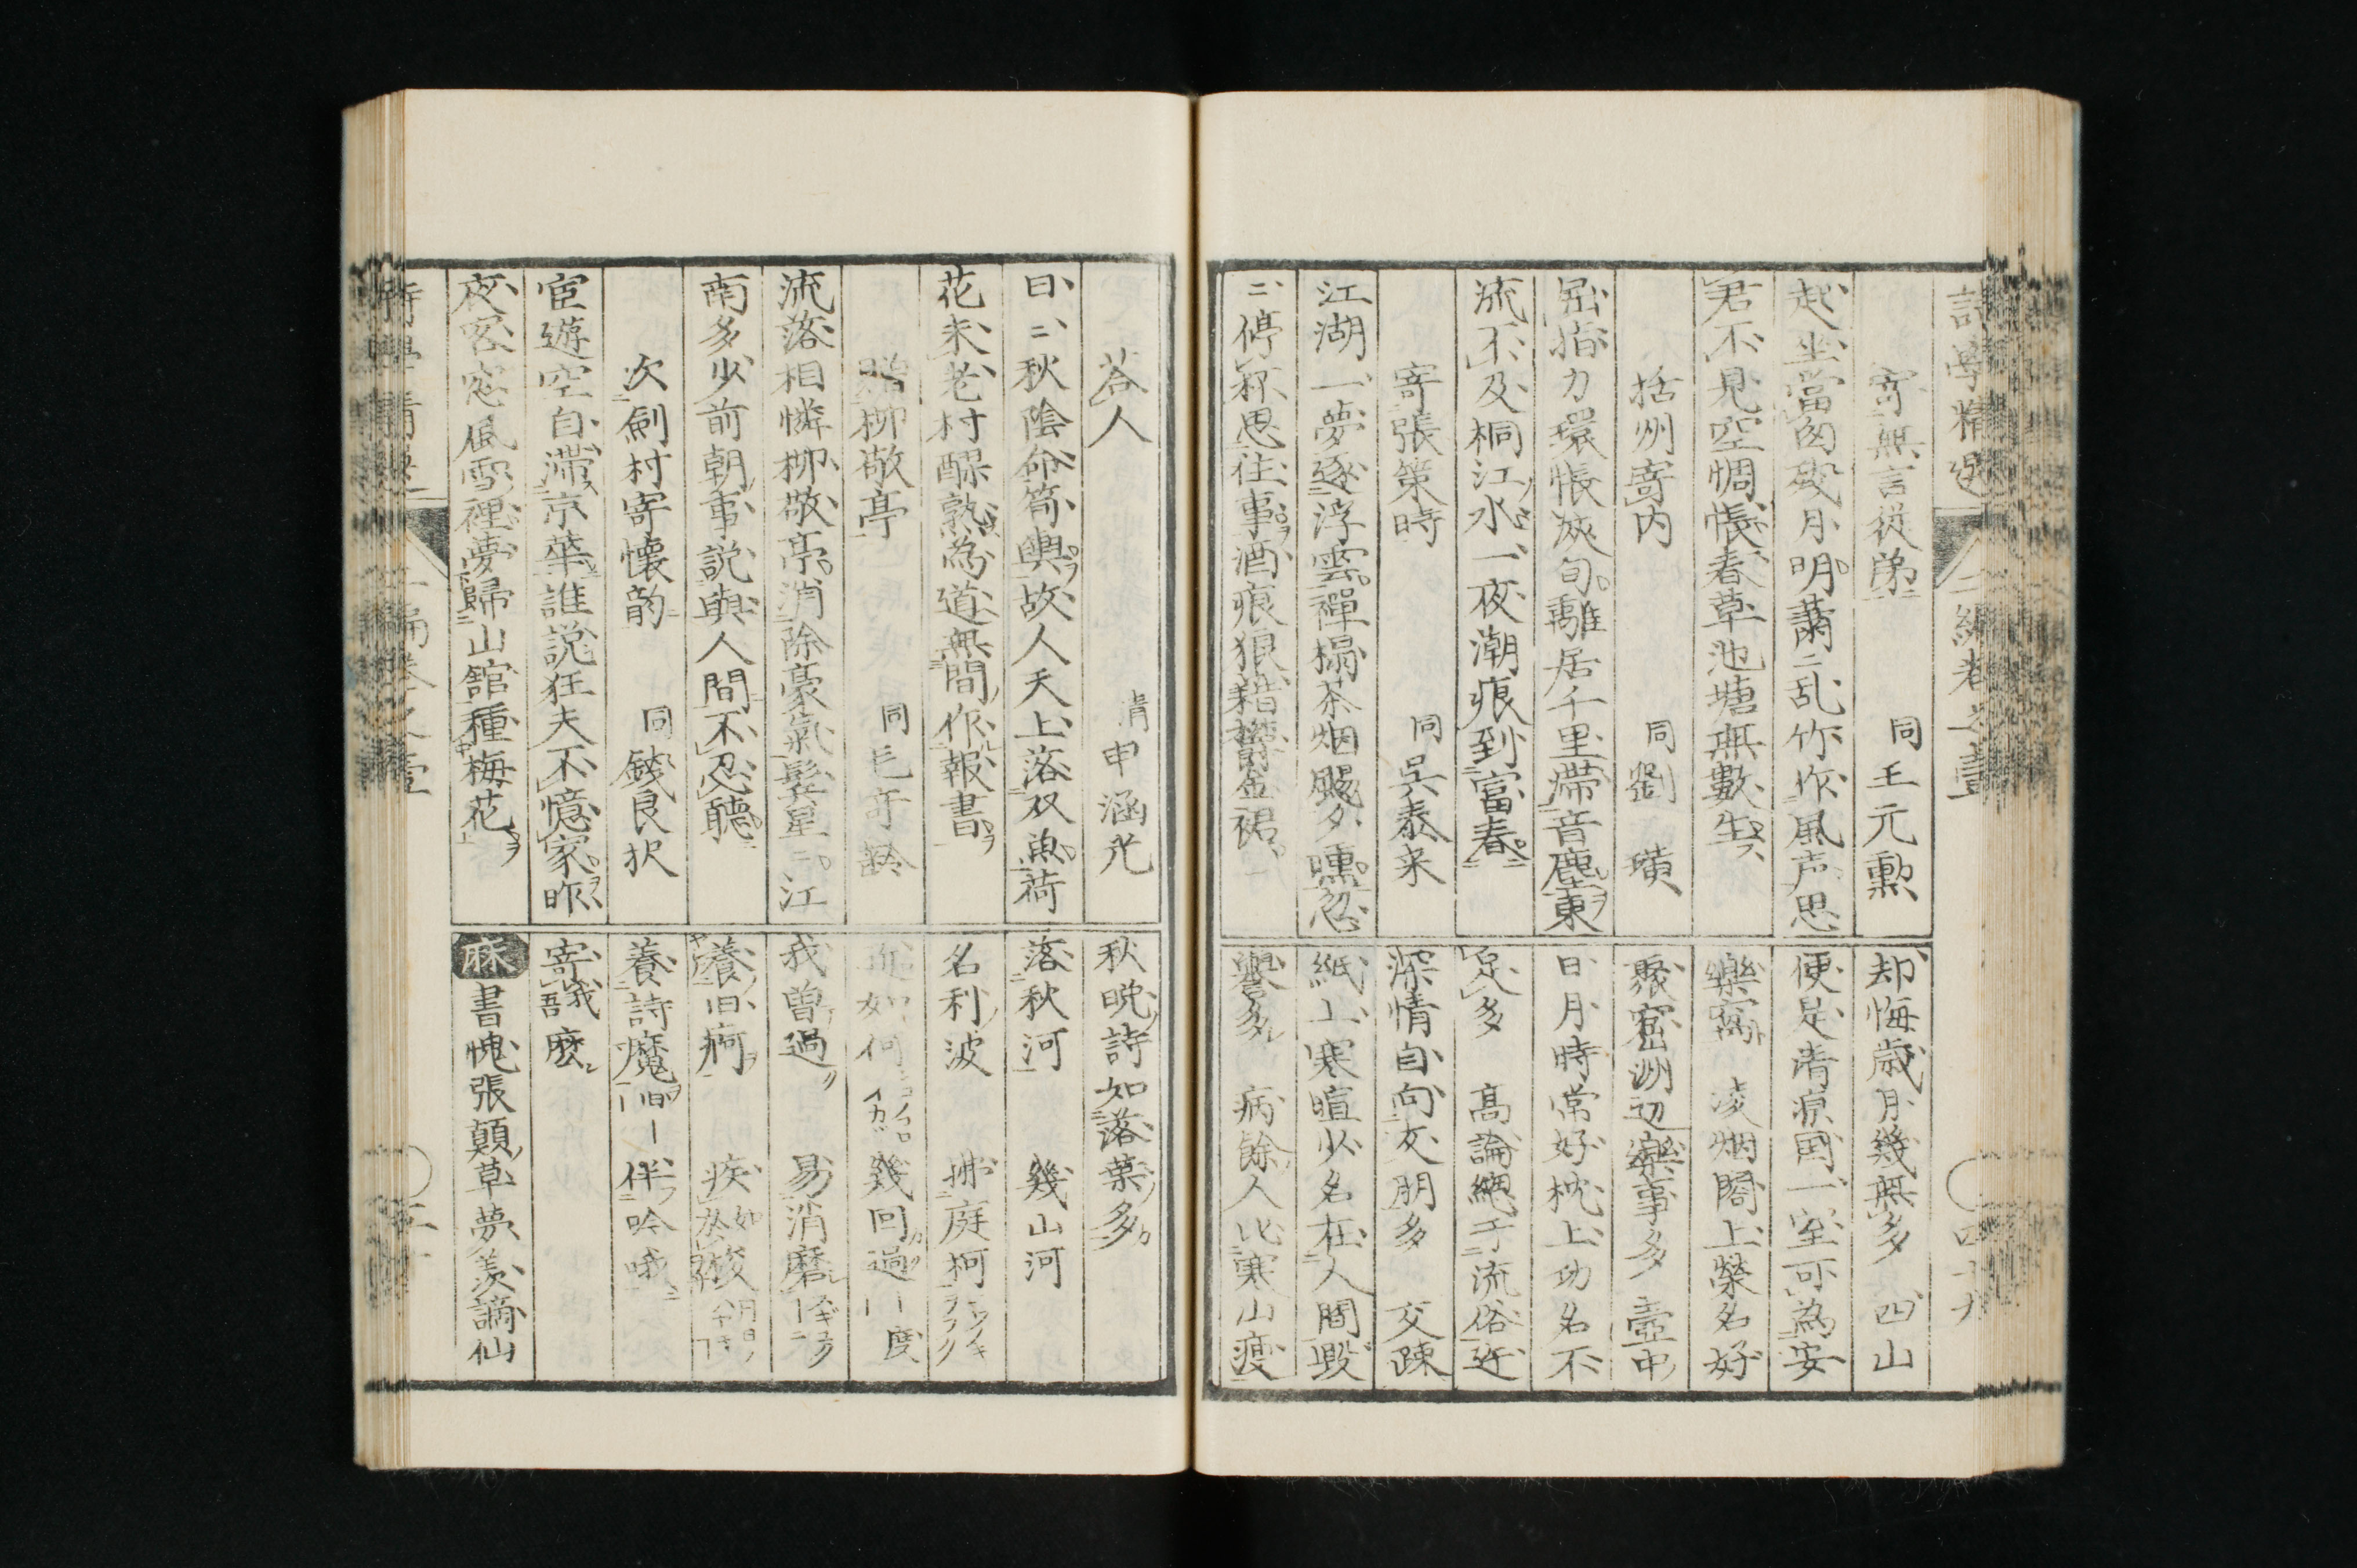 詩學精選 二編卷之壹 四十九
寄無言從弟 同王元勲
起坐當囱砌月明蕭〻乱竹作風声思
君不見空惆悵春草池塘無數生
括州寄内 同劉璜
屈指刀環悵浹旬離居千里滞音塵東
流不及桐江水一夜潮痕到富春
寄張策時 同吳泰来
江湖一夢逐浮雲禪榻茶烟颺夕曛忽
〻停秋思往事酒痕狼藉欝金裙
却悔歳月幾無多 四山
便是清凉国一室可為安
樂窩 凌烟閣上榮名好
聚窟洲辺樂事多 壷中
日月時常好枕上功名不
足多 髙論總于流俗近
深情自向交朋多 交踈
紙上寒暄少名在人間毀
譽多 病餘人比寒山痩
荅人 清申涵光
日〻秋陰命笱輿故人天上落双魚荷
花未老村醪熟為道無間作報書
贈柳敬亭 同毛奇齡
流落相憐柳敬亭消除豪氣鬂星〻江
南多少前朝事説與人間不忍聽
次劍村寄懐韵 同錢良択
宦遊空自滞京華誰説狂夫不憶家昨
夜客窓風雪裡夢歸山舘種梅花
秋晩詩如落葉多
落秋河 幾山河
名利波 拂庭柯
近如何 幾回過｜度
我曽過 易消磨
養旧痾 疾如梭
養詩魔 伴吟哦
寄我吾麽
麻 書愧張顛草夢羨謫仙